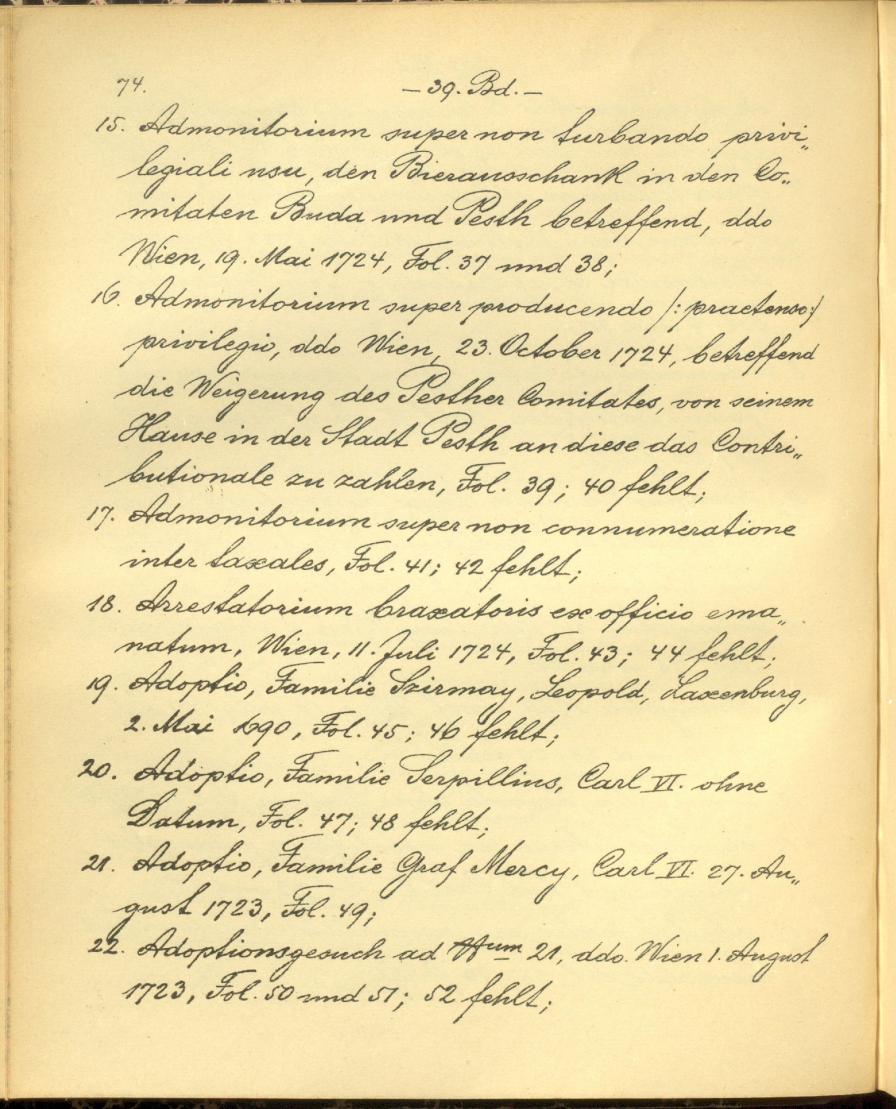 74.
— 39. Bd. —
15. Admonitorium super non turbando privi„
legiali usu, den Bierausschank in den Co„
mitaten Buda und Pesth betreffend, ddo
Wien, 19. Mai 1724, Fol. 37 und 38;
16. Admonitorium super producendo /: praetenso:/
privilegio, ddo Wien, 23. October 1724, betreffend
die Weigerung des Pesther Comitates, von seinem
Hause in der Stadt Pesth an diese das Contri„
butionale zu zahlen, Fol. 39; 40 fehlt;
17. Admonitorium super non connumeratione
inter taxales, Fol. 41; 42 fehlt;
18. Arrestatorium braxatoris ex officio ema„
natum, Wien, 11. Juli 1724, Fol. 43; 44 fehlt;
19. Adoptio, Familie Szirmay, Leopold, Laxenburg,
2. Mai 1690, Fol. 45; 46 fehlt;
20. Adoptio, Familie Serpillius, Carl VI. ohne
Datum, Fol. 47; 48 fehlt;
21. Adoptio, Familie Graf Mercy, Carl VI. 27. Au„
gust 1723, Fol. 49;
22. Adoptionsgesuch ad Num 21, ddo. Wien 1. August
1723, Fol. 50 und 51; 52 fehlt;